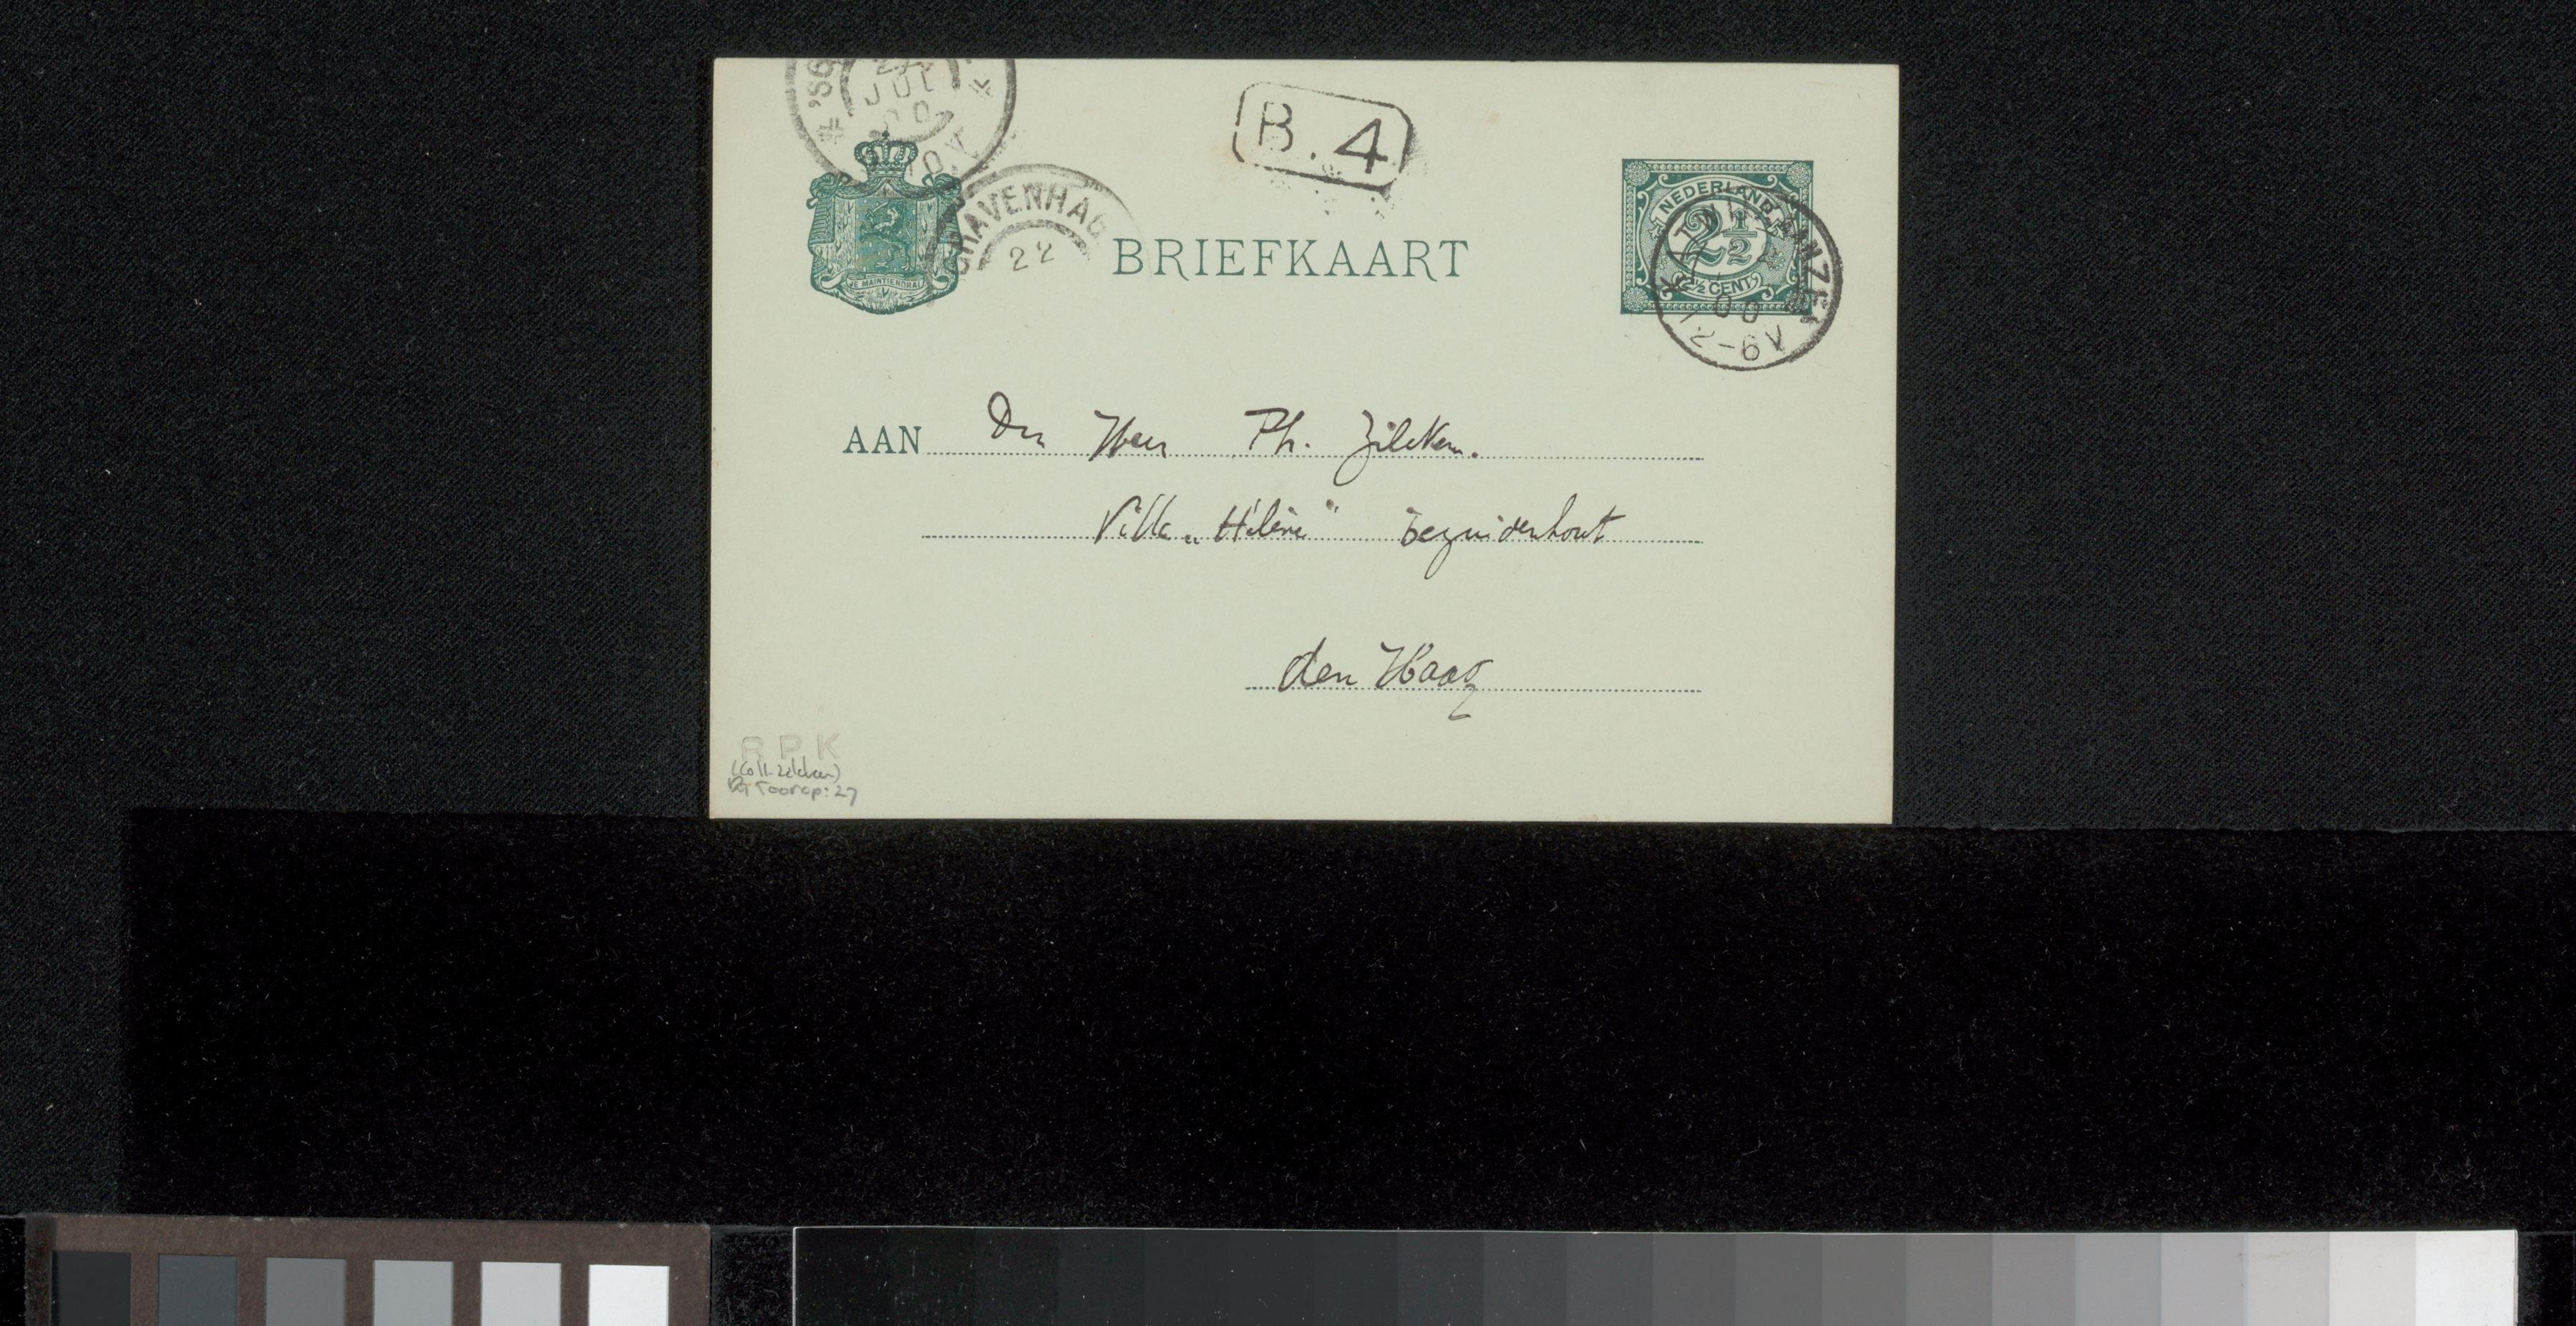 *'SG
JUL
00
10V
GRAVENHAG
22
B.4
JE MAINTIENDRAI
BRIEFKAART
NEDERLAND
2½
2½ CENT
KATWIJK AAN ZEE
00
12-6V
AAN Den Heer Ph. Zilcken.
Villa „Hélène" Bezuidenhout
den Haag
RPK
(Coll. Zilcken)
Toorop: 27